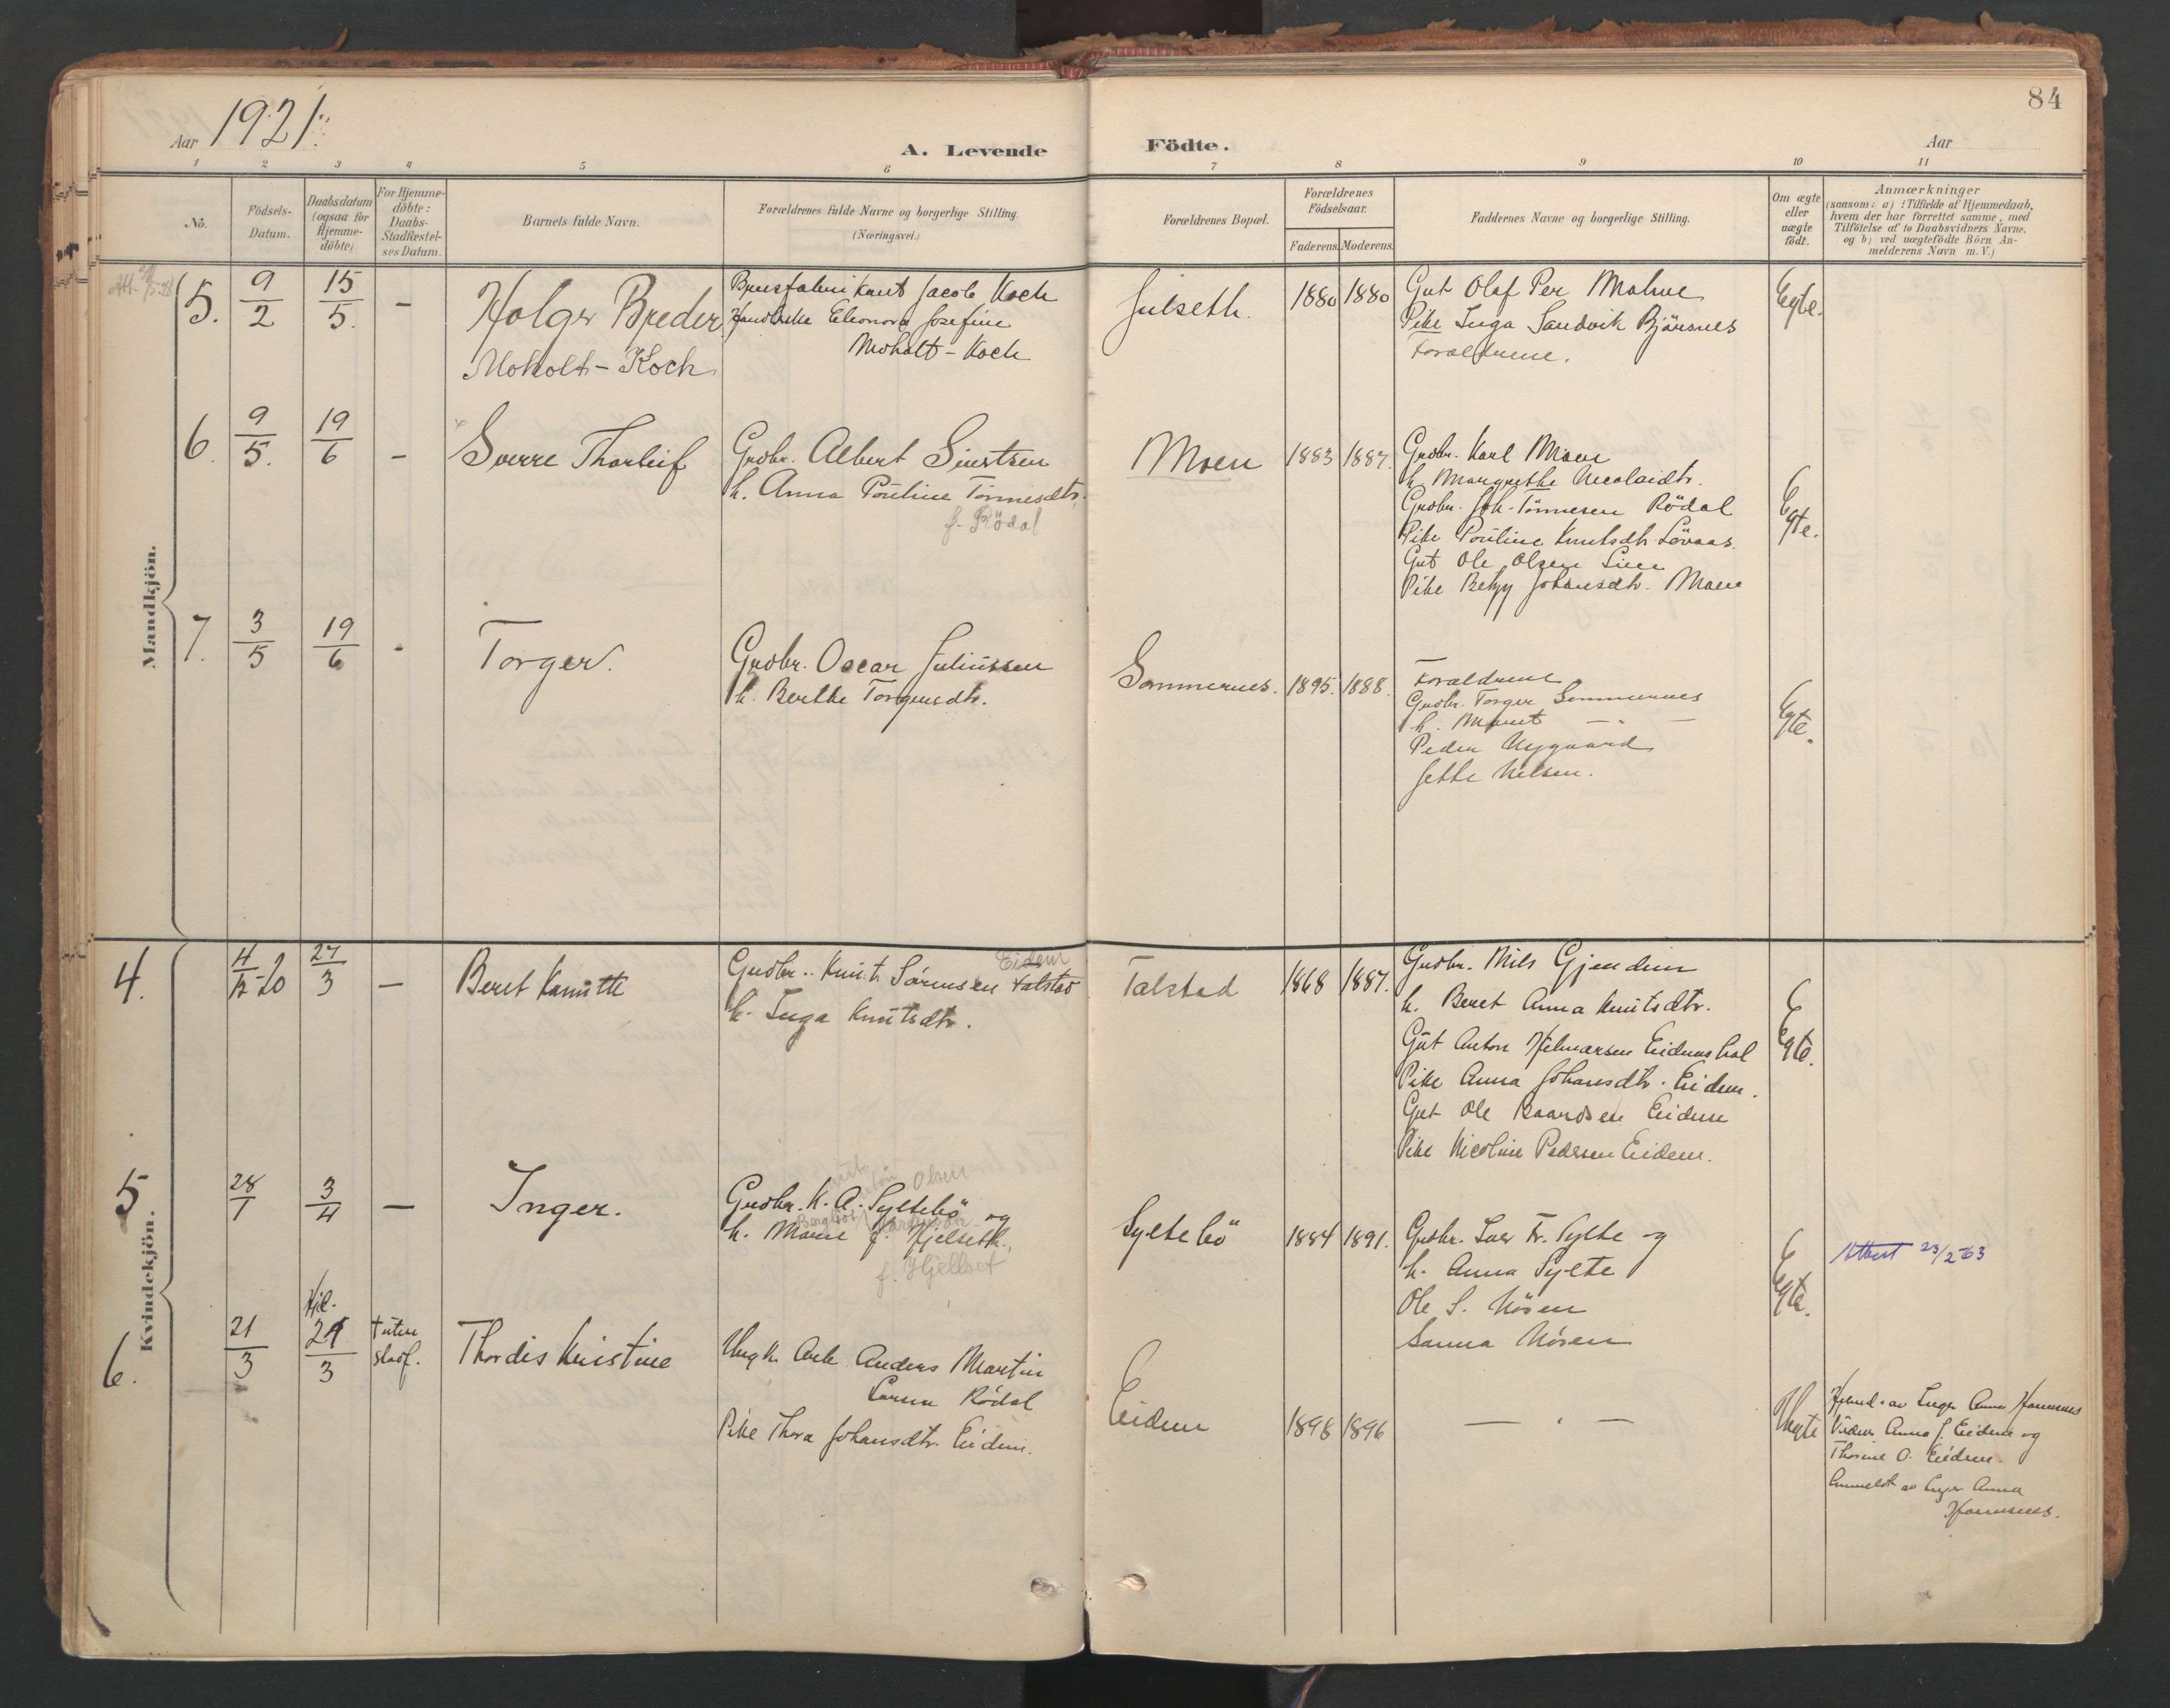 84
Aar 1921.
A. Levende Födte.
Aar
1 2 3 4 5 6 7 8 9 10 11
No.
Födsels-
Datum.
Daabsdatum
(ogsaa for
Hjemme-
döbte)
For Hjemme-
döbte:
Daabs-
Stadfestel-
ses Datum.
Barnets fulde Navn.
Forældrenes fulde Navne og borgerlige Stilling.
(Næringsvei.)
Forældrenes Bopæl.
Forældrenes
Födselsaar.
Faderens. Moderens.
Faddernes Navne og borgerlige Stilling.
Om ægte
eller
uægte
födt.
Anmærkninger
(saasom: a) i Tilfælde af Hjemmedaab,
hvem der har forrettet samme, med
Tilföielse af to Daabsvidners Navne.
og b) ved uægtefödte Börn An-
melderens Navn m. V.)
Mandkjön.
5. 9/2 15/5. –
Holger Breder
Moholt-Koch
Jacob Koch
Eleonora Josefine
Moholt-Koch
Julseth. 1880 1880
Gut Olaf Per Malme
Pike Inga Sandvik Bjørsnes
Forældrene.
Egte.
6. 9/5. 19/6 –
Sverre Thorleif
Grdbr. Albert Siversen
h. Anna Pauline Tønnesdtr.
f. Rödal
Moen 1883 1887.
Grdbr. Karl Moen
h. Margrethe Nicolaidtr.
Grdbr. Joh. Tønnesen Rödal
Pike Pauline Knutsdtr. Løvaas
Gut Ole Olsen Lien
Pike Betzy Johansdtr. Moen
Egte.
7. 3/5 19/6 -
Torger.
Grdbr. Oscar Juliussen
h. Berthe Torgersdtr.
Sommernes. 1895. 1888.
Forældrene
Grdbr. Torger Sommernes
h. Marit — " —
Peder Nygaard
Jette Nilsen.
Egte.
Kvindekjön.
4. 4/12-20 27/3 –
Beret Kanutte
Grdbr. Knut Sørensen Talstad
Eidem
h. Inga Knutsdtr.
Talstad 1868 1887.
Grdbr. Nils Gjendem
h. Beret Anna Knutsdtr.
Gut Anton Hilmarsen Eidemshal
Pike Anna Johansdtr. Eidem.
Gut Ole Baardsen Eidem
Pike Nicoline Pedersen Eidem.
Egte.
5 28/1 3/4 –
Inger.
Olsen
Grdbr. K. A. Syltebö og
h. Marie f. Hjelseth.
f. Hjellset
Syltebö 1884 1891.
Grdbr. Iver Fr. Sylte og
h. Anna Sylte
Ole S. Nösen
Sanna Nösen
Egte.
Attest 23/2-63
6. 21/3 Hjd. 21/3
stadf.
Thordis Kristine
Ungk. Arb. Anders Martin
Larsen Rödal
Pike Thora Johansdtr. Eidem.
Eidem 1898 1896
— " —
Uegte
Hjemd. av Inger Anna Hammnes
Vidner Anna J. Eidem og
Thorine O. Eidem.
Anmeldt av Inger Anna
Hammnes.